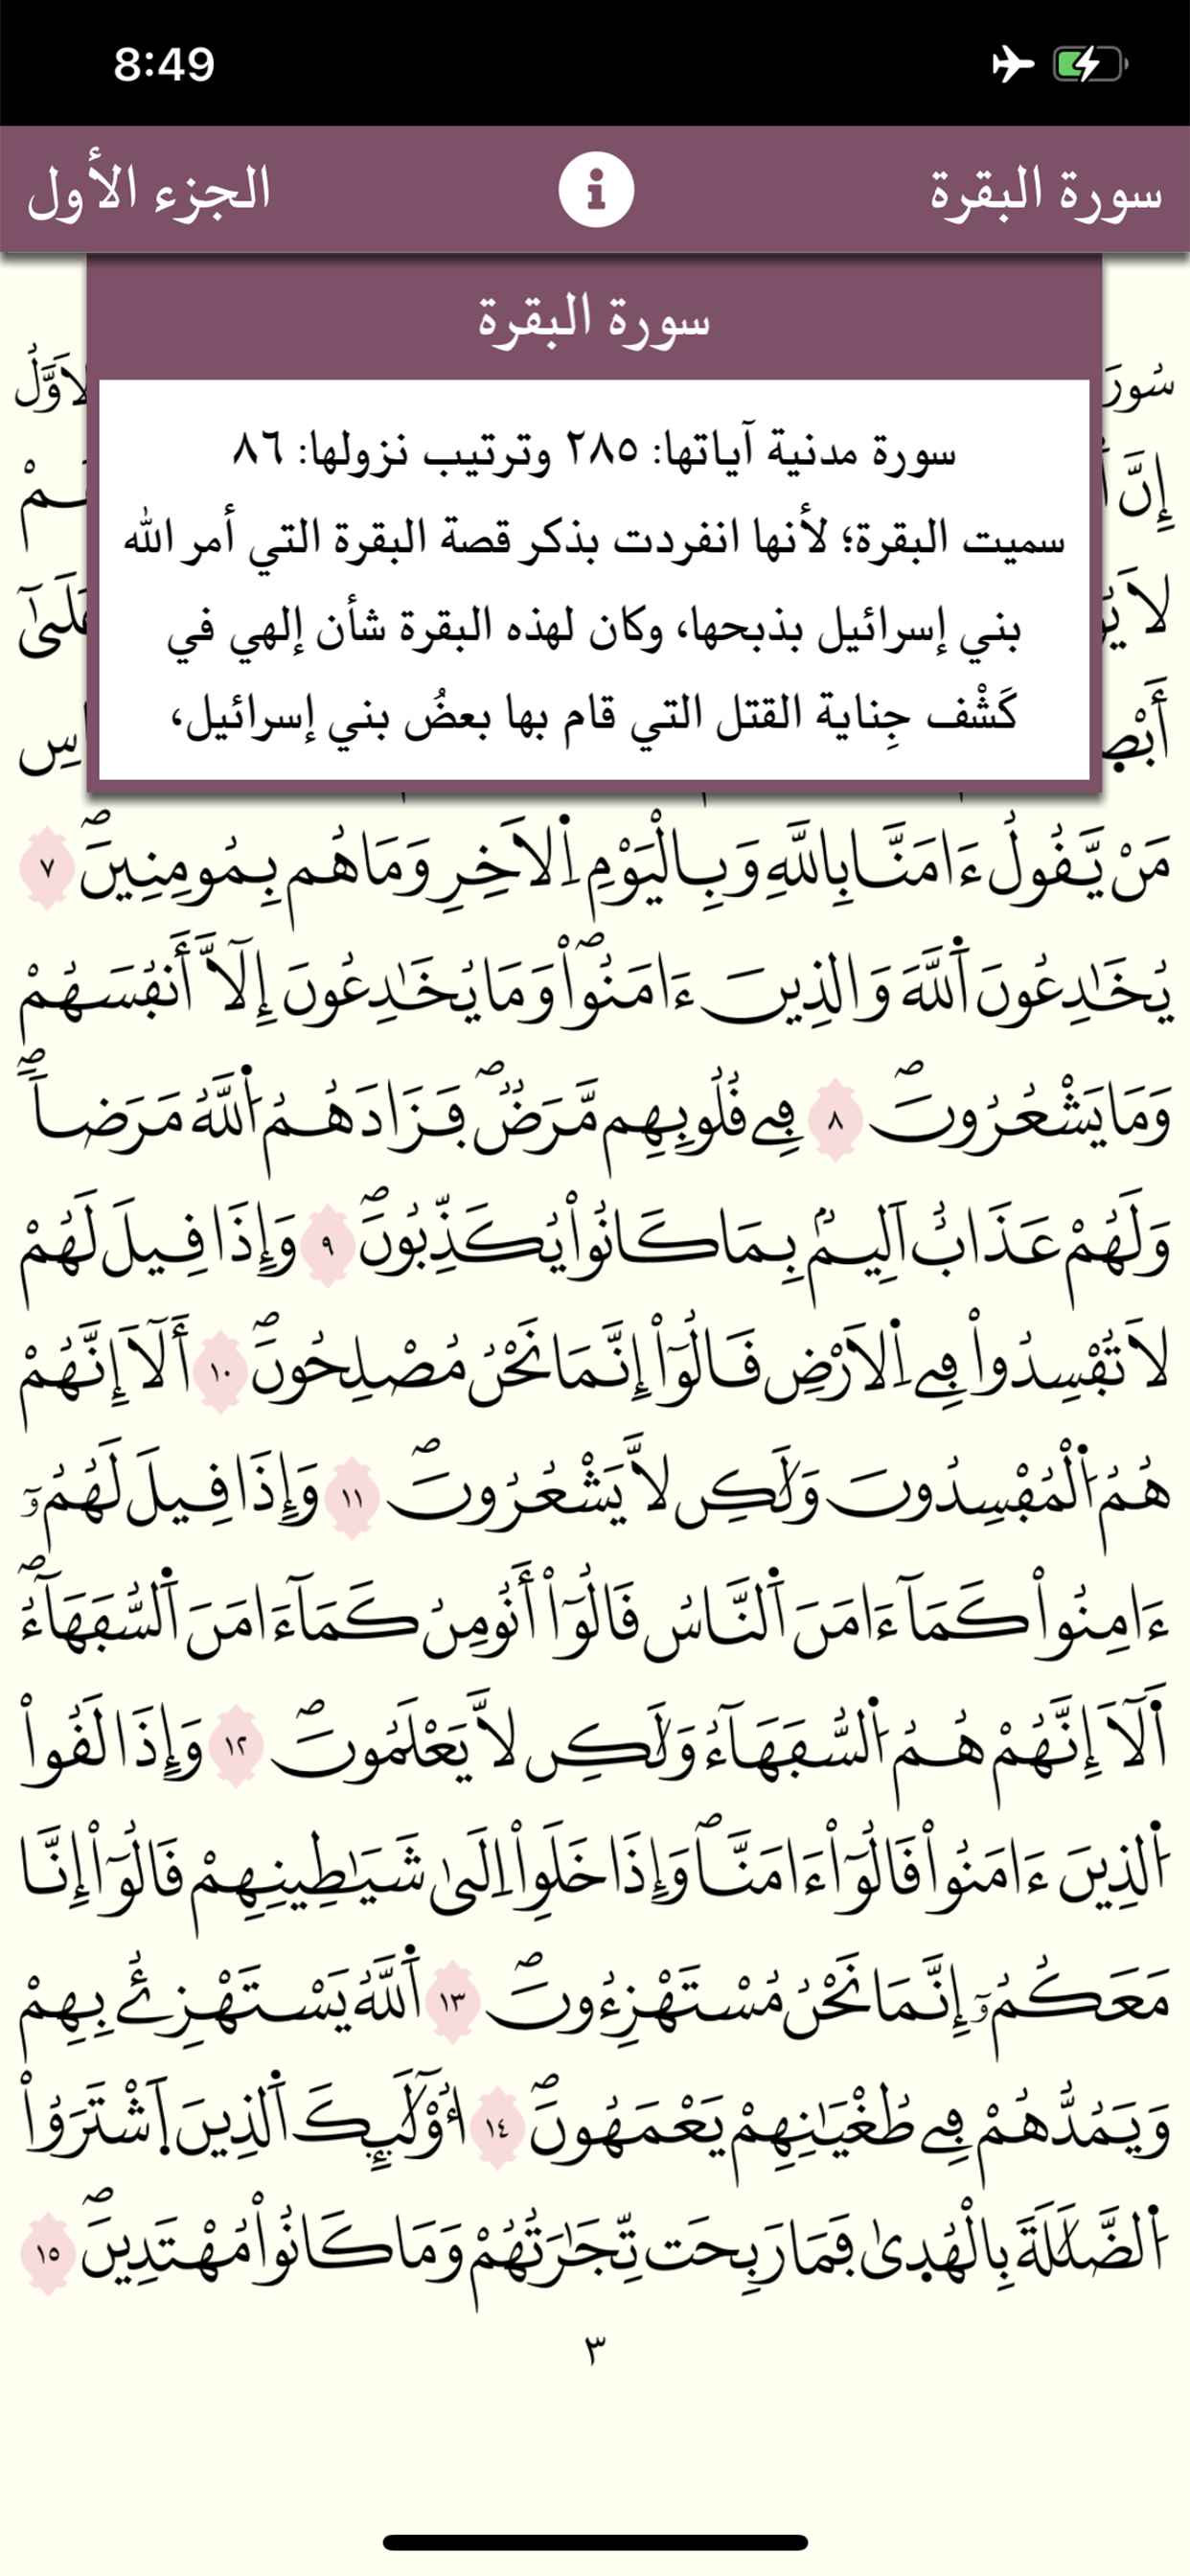 8:49
سورة البقرة
الجزء الأول
سورة البقرة
سورة مدنية آياتها: ٢٨٥ وترتيب نزولها: ٨٦
سميت البقرة؛ لأنها انفردت بذكر قصة البقرة التي أمر الله
بني إسرائيل بذبحها، وكان لهذه البقرة شأن إلهي في
كَشْف جِناية القتل التي قام بها بعضُ بني إسرائيل،
إِنَّ
مَنْ يَّڧُولُ ءَامَنَّا بِاللَّهِ وَبِالْيَوْمِ اِ۬لَاخِرِ وَمَا هُم بِمُومِنِينَۖ ٧
يُخَٰدِعُونَ اَ۬للَّهَ وَالذِينَ ءَامَنُواْۖ وَمَا يُخَٰدِعُونَ إِلَّآ أَنڢُسَهُمْ
وَمَا يَشْعُرُونَۖ ٨ ڢِے ڧُلُوبِهِم مَّرَضٞۖ ڢَزَادَهُمُ اُ۬للَّهُ مَرَضاٗۖ
وَلَهُمْ عَذَابٌ اَلِيمُۢ بِمَا كَانُواْ يُكَذِّبُونَۖ ٩ وَإِذَا ڧِيلَ لَهُمْ
لَا تُڢْسِدُواْ ڢِے اِ۬لَارْضِ ڧَالُوٓاْ إِنَّمَا نَحْنُ مُصْلِحُونَۖ ١٠ أَلَآ إِنَّهُمْ
هُمُ اُ۬لْمُڢْسِدُونَ وَلَٰكِن لَّا يَشْعُرُونَۖ ١١ وَإِذَا ڧِيلَ لَهُمُۥٓ
ءَامِنُواْ كَمَآ ءَامَنَ اَ۬لنَّاسُ ڧَالُوٓاْ أَنُومِنُ كَمَآ ءَامَنَ اَ۬لسُّڢَهَآءُۖ
أَلَآ إِنَّهُمْ هُمُ اُ۬لسُّڢَهَآءُ وَلَٰكِن لَّا يَعْلَمُونَۖ ١٢ وَإِذَا لَڧُواْ
اُ۬لذِينَ ءَامَنُواْ ڧَالُوٓاْ ءَامَنَّاۖ وَإِذَا خَلَوِاْ اِلَىٰ شَيَٰطِينِهِمْ ڧَالُوٓاْ إِنَّا
مَعَكُمُۥٓ إِنَّمَا نَحْنُ مُسْتَهْزِءُونَۖ ١٣ اَ۬للَّهُ يَسْتَهْزِۓُ بِهِمْ
وَيَمُدُّهُمْ ڢِے طُغْيَٰنِهِمْ يَعْمَهُونَۖ ١٤ أُوْلَٰٓئِكَ اَ۬لذِينَ اَ۪شْتَرَوُاْ
اُ۬لضَّلَٰلَةَ بِالْهُد۪ىٰ ڢَمَا رَبِحَت تِّجَٰرَتُهُمْ وَمَا كَانُواْ مُهْتَدِينَۖ ١٥
٣